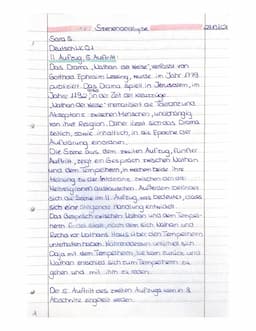 Szenenanalyse
Sara S.
Deutsch LK Q1
II. Aufzug, 5. Auftritt
Das Drama „Nathan der Weise", verfasst von
Gotthold Ephraim Lessing, wurde im Jahr 1779
publiziert. Das Drama spielt in Jerusalem, im
Jahre 1192, in der Zeit der Kreuzzüge.
„Nathan der Weise" thematisiert die Toleranz und
Akzeptanz zwischen Menschen, unabhängig
von ihrer Religion. Daher lässt sich das Drama
zeitlich, sowie inhaltlich, in die Epoche der
Aufklärung einordnen.
Die Szene aus dem zweiten Aufzug, fünfter
Auftritt, zeigt ein Gespräch zwischen Nathan
und dem Tempelherrn, in welchem beide ihre
Meinung zu der Intoleranz zwischen den drei
Weltreligionen austauschen. Außerdem befindet
sich die Szene im II. Aufzug, was bedeutet, dass
sich eine steigende Handlung entwickelt.
Das Gespräch zwischen Nathan und dem Tempel-
herrn findet statt, nach dem sich Nathan und
Recha vor Nathans Haus über den Tempelherrn
unterhalten haben. Währenddessen
Daja mit dem Tempelherrn, sie kam zurück und
Nathan entschied sich zum Tempelherrn zu
gehen und mit ihm zu reden.
Der 5. Auftritt des zweiten Aufzugs kann in 3
Abschnitte eingeteilt werden.